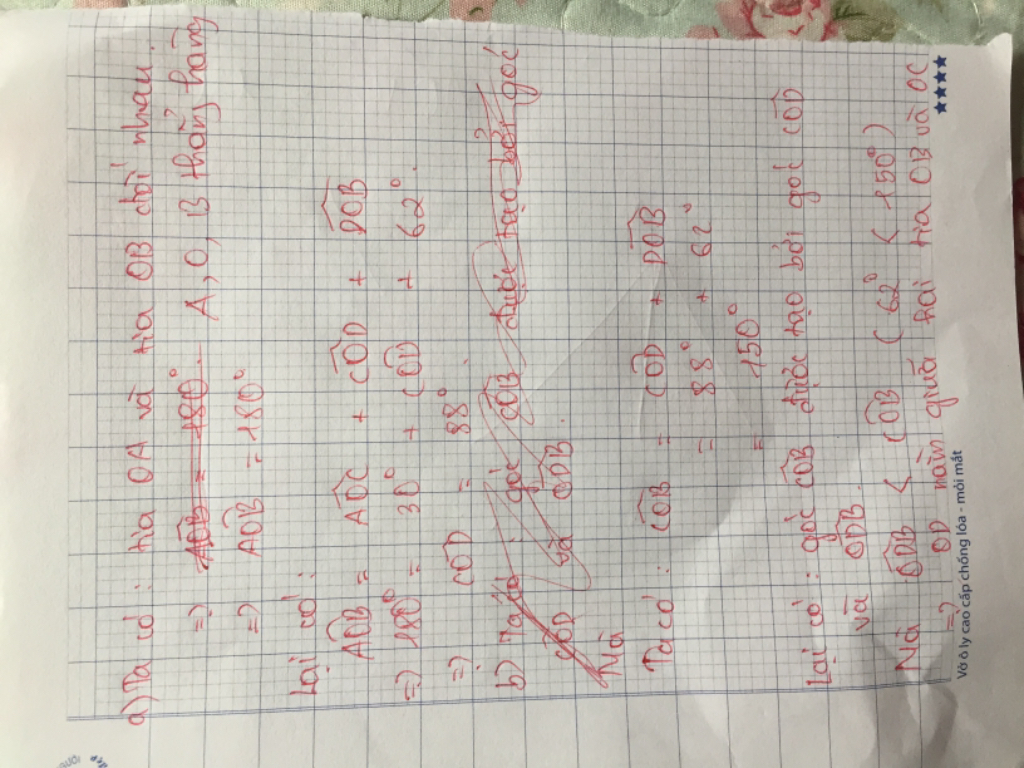 a) Ta có : tia OA và tia OB đối nhau.
=> AOB = 180° . A, O, B thẳng hàng
=> AOB = 180°
Lại có :
AOB = AOC + COD + DOB
=> 180° = 30° + COD + 62°.
=> COD = 88°.
b) Ta có : góc COB được tạo bởi góc
COD và góc ODB.
Mà
Ta có : COB = COD + DOB
= 88° + 62°
= 150°
Lại có : góc COB được tạo bởi góc COD
và góc ODB.
Mà ODB < COB ( 62° < 150° )
=> OD nằm giữa hai tia OB và OC
Vở ô ly cao cấp chống lóa - mỏi mắt